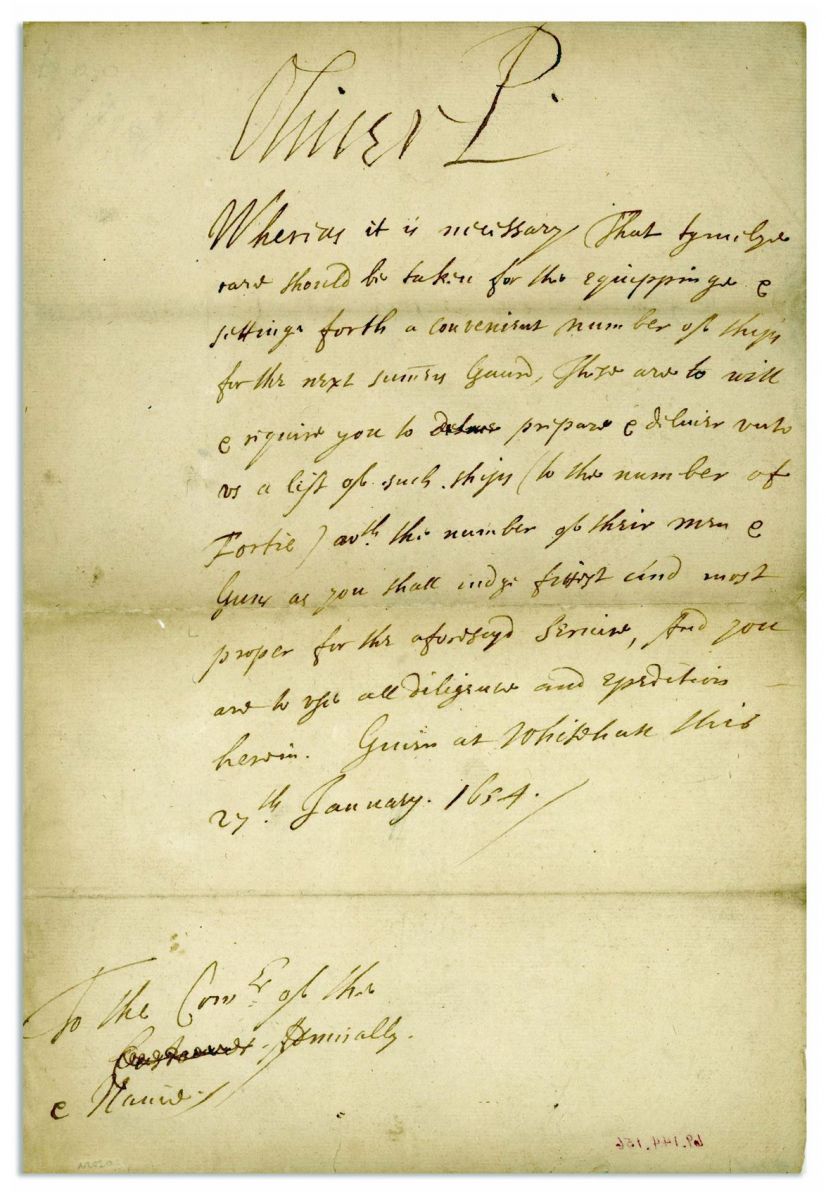 Oliver P.
Wherias it is necessary That tymelye
care should be taken for the equippinge &
settinge forth a convenient number of ships
for the next sum̄ers Guard, These are to will
& require you to deliver prepare & deliuer vnto
vs a list of such ships (to the number of
Fortie) wth the number of their men &
Guns as you shall iudge fittest and most
proper for the aforesayd Seruice, And you
are to vse all diligence and expedition
herein. Giuen at Whitehall this
27th January. 1654.
To the Comrs of the
Customes Admiralty.
& Nauie.
69.144.156